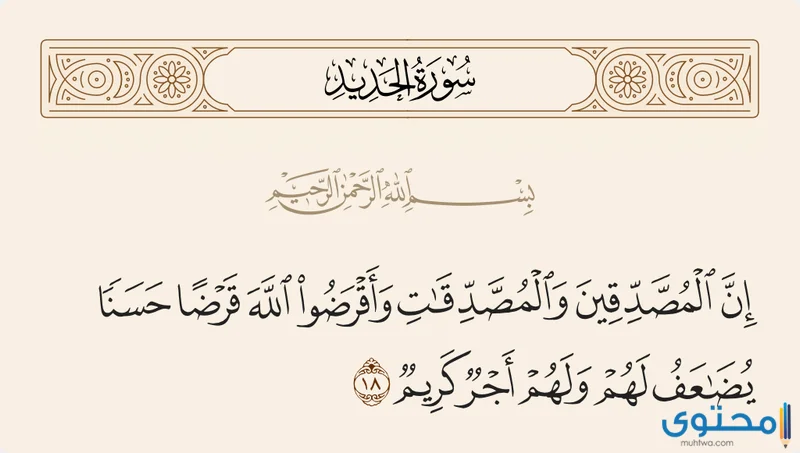 سُورَةُ الحَدِيدِ
بِسْمِ ٱللَّهِ ٱلرَّحْمَٰنِ ٱلرَّحِيمِ
إِنَّ ٱلْمُصَّدِّقِينَ وَٱلْمُصَّدِّقَٰتِ وَأَقْرَضُوا۟ ٱللَّهَ قَرْضًا حَسَنًا
يُضَٰعَفُ لَهُمْ وَلَهُمْ أَجْرٌ كَرِيمٌ ١٨
محتوى
muhtwa.com